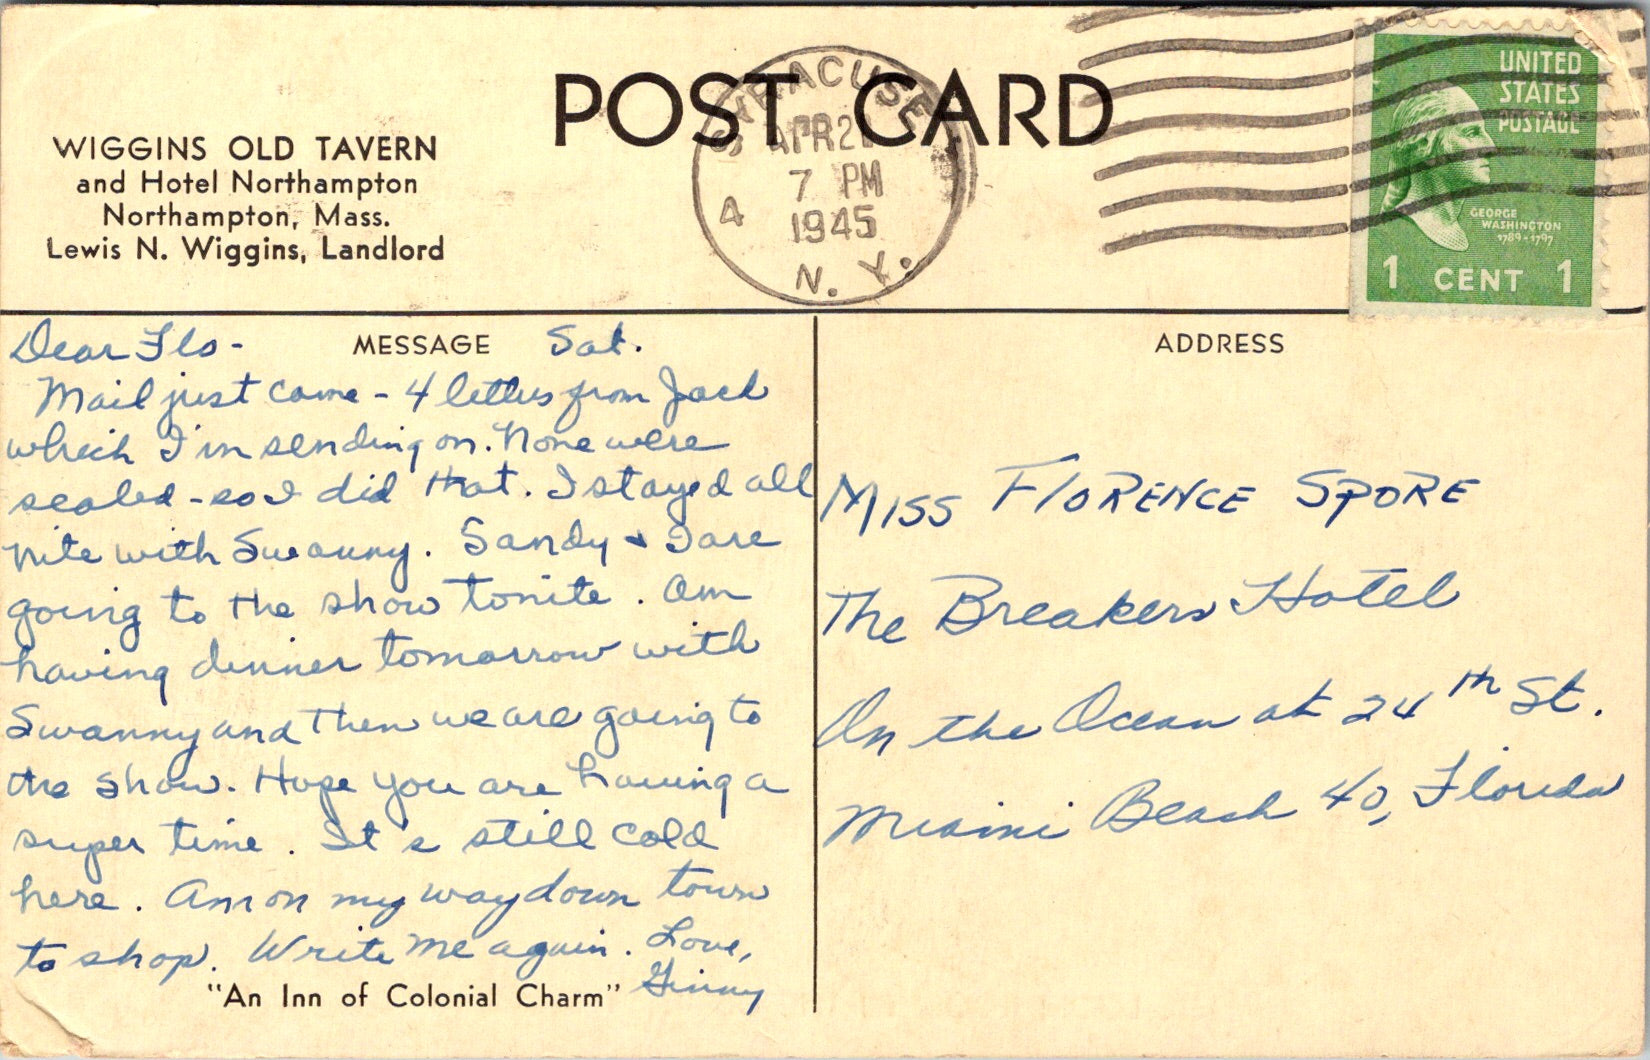 POST CARD
WIGGINS OLD TAVERN
and Hotel Northampton
Northampton, Mass.
Lewis N. Wiggins, Landlord
SYRACUSE
APR 21
7 PM
A
1945
N. Y.
UNITED
STATES
POSTAGE
GEORGE
WASHINGTON
1789-1797
1 CENT 1
MESSAGE
Dear Flo- Sat.
Mail just came - 4 letters from Jack
which I'm sending on. None were
sealed - so I did that. I stayed all
nite with Swanny. Sandy & I are
going to the show tonite. Am
having dinner tomorrow with
Swanny and then we are going to
the show. Hope you are having a
super time. It's still cold
here. Am on my way down town
to shop. Write me again. Love,
Ginny
"An Inn of Colonial Charm"
ADDRESS
MISS FLORENCE SPORE
The Breakers Hotel
On the Ocean at 24th St.
Miami Beach 40, Florida